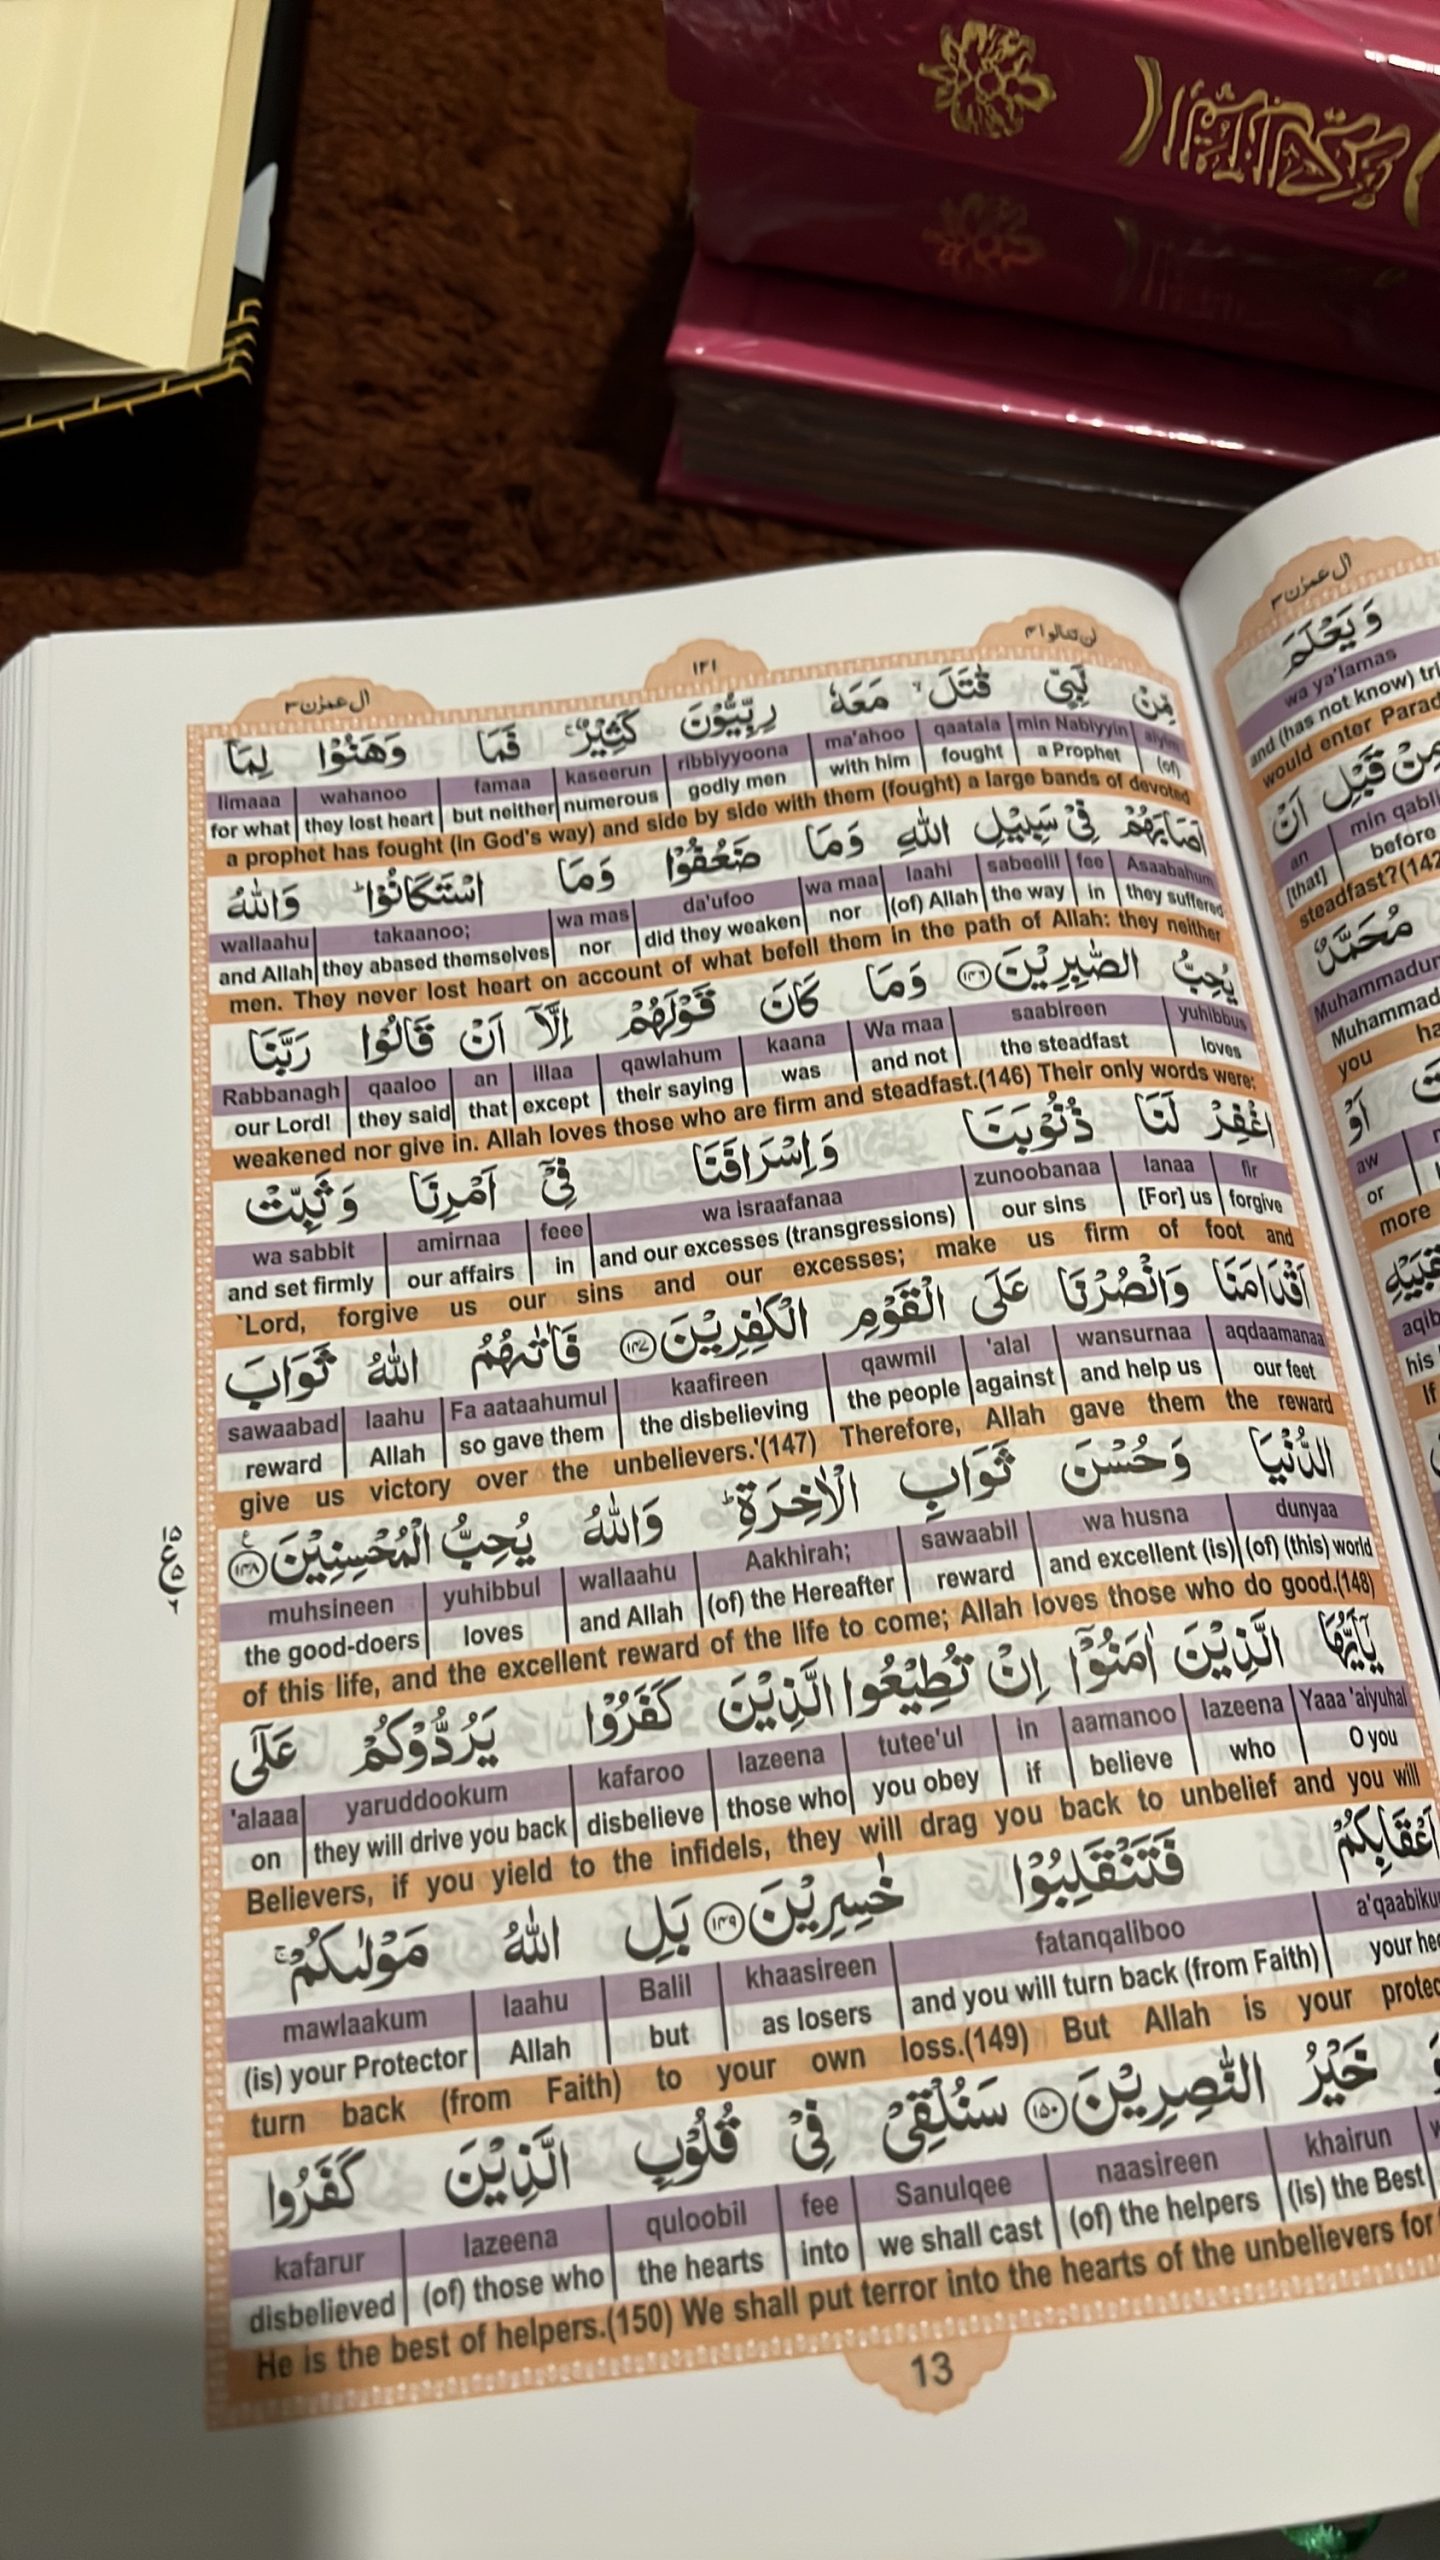 الكريم
ال عمرٰن ٣
١٢١
لن تنالوا ٤
مِّنْ نَّبِيٍّ قٰتَلَ ۙ مَعَهٗ رِبِّيُّوْنَ كَثِيْرٌ ۚ فَمَا وَهَنُوْا لِمَاۤ
limaaa wahanoo famaa kaseerun ribbiyyoona ma'ahoo qaatala min Nabiyyin
for what they lost heart but neither numerous godly men with him fought a Prophet (of)
a prophet has fought (in God's way) and side by side with them (fought) a large bands of devoted
اَصَابَهُمْ فِيْ سَبِيْلِ اللّٰهِ وَمَا ضَعُفُوْا وَمَا اسْتَكَانُوْا ؕ وَاللّٰهُ
wallaahu takaanoo; wa mas da'ufoo wa maa laahi sabeelil fee Asaabahum
and Allah they abased themselves nor did they weaken nor (of) Allah the way in they suffered
men. They never lost heart on account of what befell them in the path of Allah: they neither
يُحِبُّ الصّٰبِرِيْنَ ١٤٦ وَمَا كَانَ قَوْلَهُمْ اِلَّاۤ اَنْ قَالُوْا رَبَّنَا
Rabbanagh qaaloo an illaa qawlahum kaana Wa maa saabireen yuhibbus
our Lord! they said that except their saying was and not the steadfast loves
weakened nor give in. Allah loves those who are firm and steadfast.(146) Their only words were:
اغْفِرْ لَنَا ذُنُوْبَنَا وَاِسْرَافَنَا فِيْۤ اَمْرِنَا وَثَبِّتْ
wa sabbit amirnaa feee wa israafanaa zunoobanaa lanaa fir
and set firmly our affairs in and our excesses (transgressions) our sins [For] us forgive
`Lord, forgive us our sins and our excesses; make us firm of foot and
اَقْدَامَنَا وَانْصُرْنَا عَلَى الْقَوْمِ الْكٰفِرِيْنَ ١٤٧ فَاٰتٰىهُمُ اللّٰهُ ثَوَابَ
sawaabad laahu Fa aataahumul kaafireen qawmil 'alal wansurnaa aqdaamanaa
reward Allah so gave them the disbelieving the people against and help us our feet
give us victory over the unbelievers.'(147) Therefore, Allah gave them the reward
الدُّنْيَا وَحُسْنَ ثَوَابِ الْاٰخِرَةِ ؕ وَاللّٰهُ يُحِبُّ الْمُحْسِنِيْنَ ١٤٨
muhsineen yuhibbul wallaahu Aakhirah; sawaabil wa husna dunyaa
the good-doers loves and Allah (of) the Hereafter reward and excellent (is) (of) (this) world
of this life, and the excellent reward of the life to come; Allah loves those who do good.(148)
يٰۤاَيُّهَا الَّذِيْنَ اٰمَنُوْۤا اِنْ تُطِيْعُوا الَّذِيْنَ كَفَرُوْا يَرُدُّوْكُمْ عَلٰۤى
'alaaa yaruddookum kafaroo lazeena tutee'ul in aamanoo lazeena Yaaa 'aiyuhal
on they will drive you back disbelieve those who you obey if believe who O you
Believers, if you yield to the infidels, they will drag you back to unbelief and you will
اَعْقَابِكُمْ فَتَنْقَلِبُوْا خٰسِرِيْنَ ١٤٩ بَلِ اللّٰهُ مَوْلٰىكُمْ ۚ
mawlaakum laahu Balil khaasireen fatanqaliboo
(is) your Protector Allah but as losers and you will turn back (from Faith) your
turn back (from Faith) to your own loss.(149) But Allah is your
خَيْرُ النّٰصِرِيْنَ ١٥٠ سَنُلْقِيْ فِيْ قُلُوْبِ الَّذِيْنَ كَفَرُوا
kafarur lazeena quloobil fee Sanulqee naasireen khairun
disbelieved (of) those who the hearts into we shall cast (of) the helpers (is) the Best
He is the best of helpers.(150) We shall put terror into the hearts of the unbelievers for
13
ال عمرٰن ٣
وَيَعْلَمَ
wa ya'lamas
and (has not know)
would enter
مِنْ قَبْلِ اَنْ
an min
[that] before
steadfast?(142
مُحَمَّدٌ
Muhammadun
Muhammad
you
اَوْ
aw
or
more
his
If